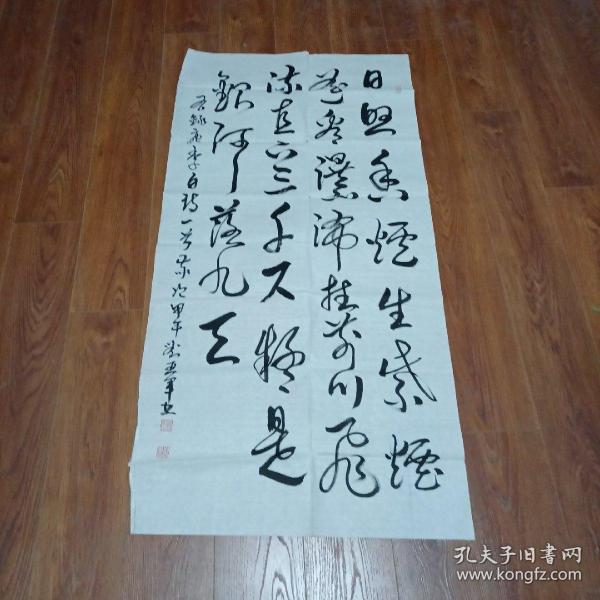 日照香爐生紫煙
遥看瀑布挂前川飛
流直下三千尺疑是
銀河落九天
李白詩一首歲次甲午
孔夫子旧書网
www.kongfz.com